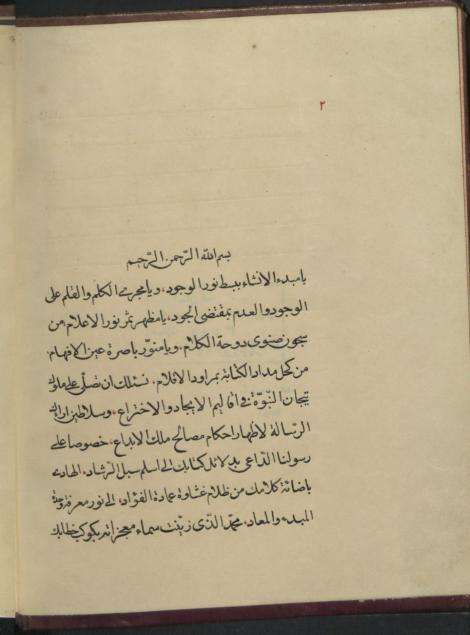 ٢
بسم الله الرّحمن الرّحيم
يا مبدء الانشاء ببسط نور الوجود، ويا مجرى الكلم والقلم على
الوجود والعدم بمقتضى الجود، يا مظهر ثمر نور الاعلام من
سجون صنوى دوحة الكلام. ويا منوّر باصرة عين الافهام.
من كحل مداد الكتابة بمراود الاقلام. نسئلك ان تصلّى على ملوك
تيجان النّبوّة فى اقاليم الايجاد والاختراع، وسلاطين
الرّسالة لاظهار احكام مصالح ملك الابداع، خصوصا على
رسولنا الدّاعى بدلائل كتابك الى اسلم سبل الرّشاد. الهادى
باضائة كلامك من ظلام غشاوة عماء الفؤاد، الى نور معرفة
المبدء والمعاد، محمّد الّذى زيّنت سماء معجزاته بكوكب خطابك